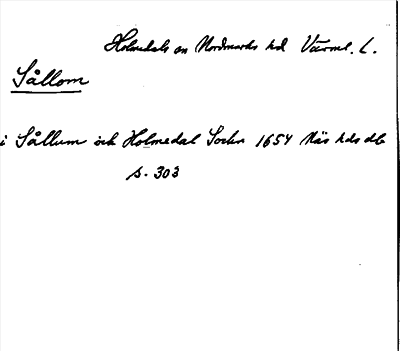 Holmedals sn Nordmarks hd Värml. L.
Sållom
i Sållum och Holmedal Sockn 1654 Näs hds db
s. 303